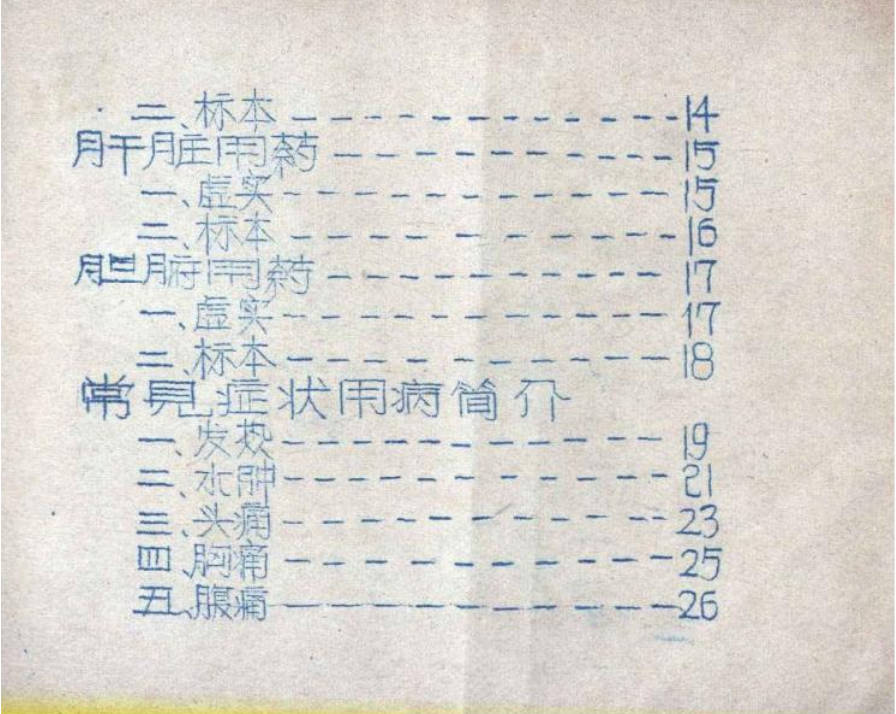 二、标本-------------14
肝脏用药-------------15
一、虚实-------------15
二、标本-------------16
胆腑用药-------------17
一、虚实-------------17
二、标本-------------18
常见症状用病简介
一、发热-------------19
二、水肿-------------21
三、头痛-------------23
四、胸痛-------------25
五、腹痛-------------26